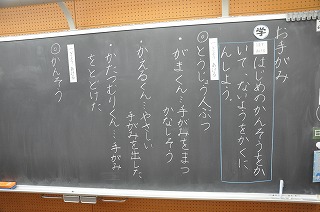 お手がみ
学
はじめのかんそうをか
いて、ないようをかくに
んしよう。
◎とうじょう人ぶつ
・がまくん…手がみをまつ
かなしそう
・かえるくん…やさしい
手がみを出した
・かたつむりくん…手がみ
をとどけた
◎かんそう